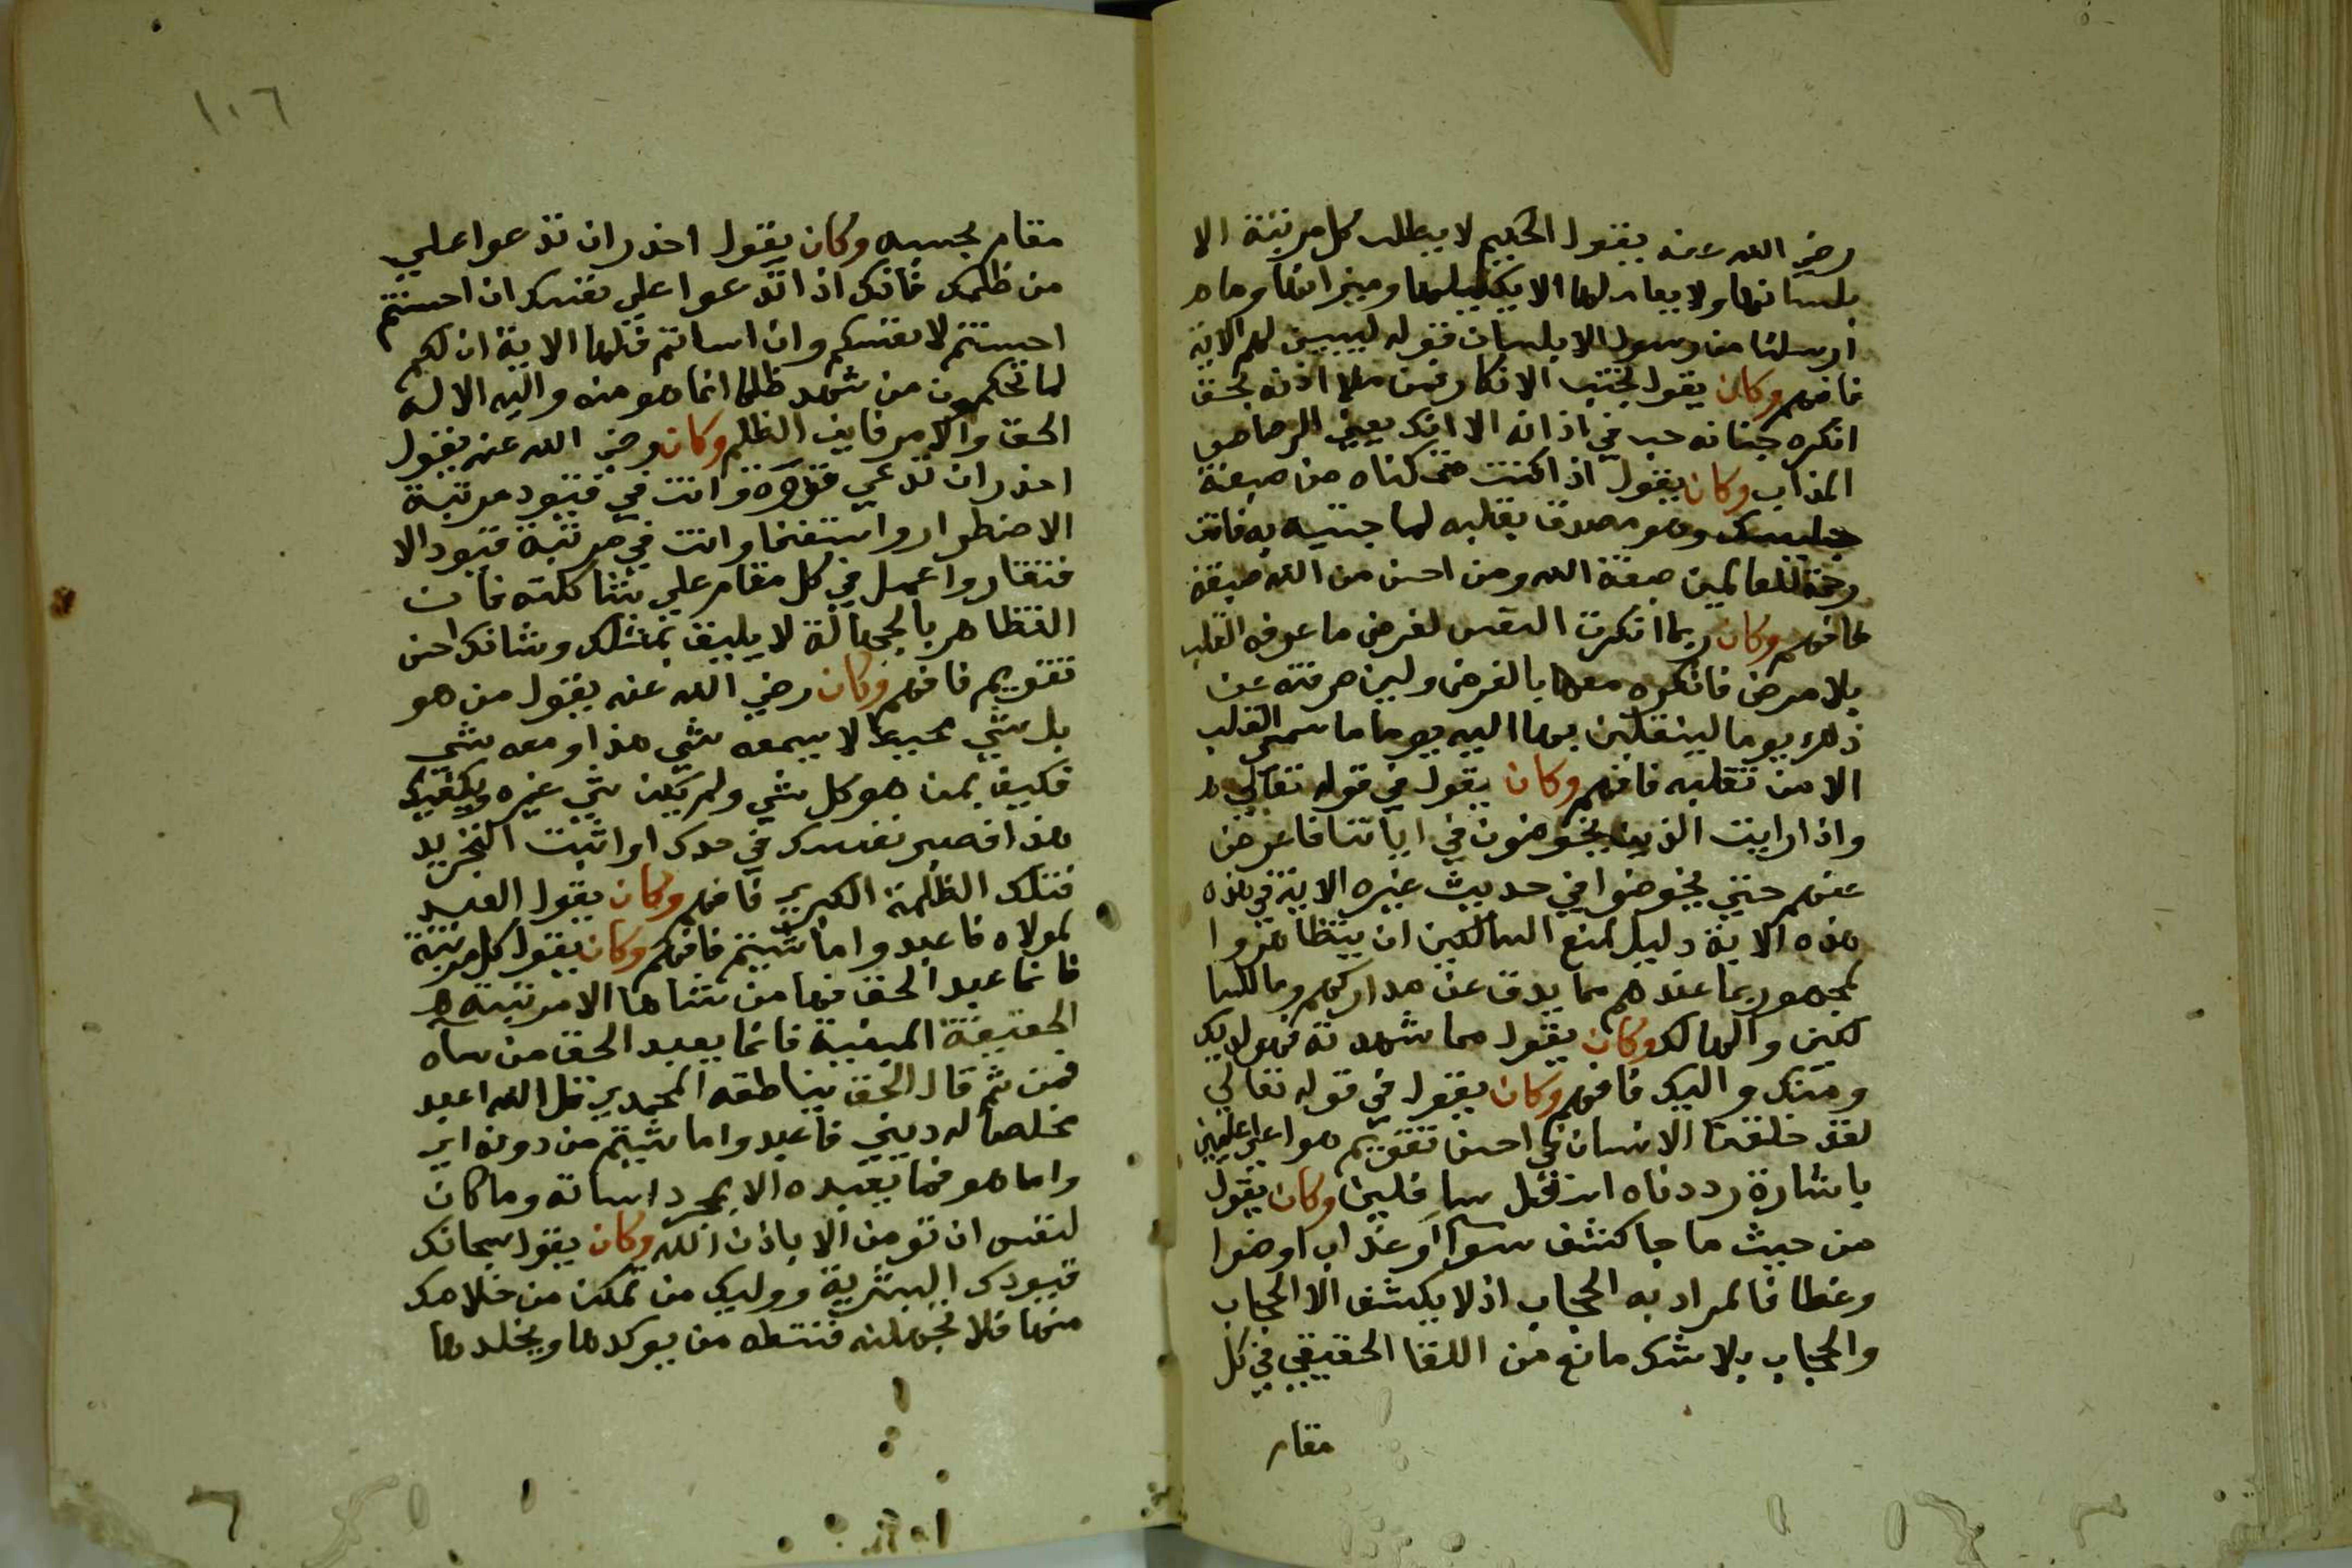 رضي الله عنه يقول الحكيم لا يطلب كل مرتبة الا
بلسانها ولا يعاملها الا بكيلها وميزانها وما
ارسلنا من رسول الا بلسان قوله ليبين لهم الاية
فافهم وكان يقول تجنب الانكار فمن ملا اذنه بحق
انكره جنانه صب في اذانه الانك يعني الرصاص
المذاب وكان يقول اذا كنت من صبغة
جليسك وهو مصدق بقلبه لما جيت به فانت
رحمة للعالمين صبغة الله ومن احسن من الله صبغة
فافهم وكان ربما انكرت النفس لغرض ما عرفه القلب
بلا مرض فانكره معها بالغرض ولين صرفته عن
ذلك يوما لينقلبن بها اليه يوما ما سمي القلب
الا من تقلبه فافهم وكان يقول في قوله تعالي
واذا رايت الذين يخوضون في اياتنا فاعرض
عنهم حتي يخوضوا في حديث غيره الاية في هذه
هذه الاية دليل لمنع السالكين ان يتظاهروا
لمحجور بما عندهم مما يدق عن مداركهم وما للسا
لكين والهالك وكان يقول مما شهدته فهو لديك
ومنك واليك فافهم وكان يقول في قوله تعالي
لقد خلقنا الانسان في احسن تقويم هو اعلي عليين
باشارة رددناه اسفل سافلين وكان يقول
من حيث ما جا كشف سوا او عذاب او ضوا
وغطا فالمراد به الحجاب اذ لا يكشف الا الحجاب
والحجاب بلا شك مانع من اللقا الحقيقي في كل
مقام
١٠٦
مقام بحسبه وكان يقول احذر ان تدعوا علي
من ظلمك فانك اذا تدعوا علي نفسك ان احسنتم
احسنتم لانفسكم وان اساتم فلها الاية ان لكم
لما تحكمون من شهد ظلما انما هو منه واليه الا له
الحق والامر فاين الظلم وكان رضي الله عنه يقول
احذر ان تدعي قوة وانت في قيود مرتبة
الاضطرار واستغنا وانت في مرتبة قيود الا
فتقار واعمل في كل مقام علي شاكلته فان
التظاهر بالجهالة لا يليق بمثلك وشانك احسن
تقويم فافهم وكان رضي الله عنه يقول من هو
بل شي محيط لا يسعه شي هذا ومعه شي
فكيف بمن هو كل شي ولم يكن شي غيره ويكفيك
هذا فصير نفسك في حدك او اثبت التجريد
فتلك الظلمة الكبري فافهم وكان يقول العبد
لمولاه فاعبدوا ما شيتم فافهم وكان يقول كل مرتبة
فانما عبد الحق فيها من شاها الا مرتبة
الحقيقة المبقية فانما يعبد الحق من ساه
فمن ثم قال الحق بناطقه المحمدي قل الله اعبد
مخلصا له ديني فاعبدوا ما شيتم من دونه اي
واما هو فما تعبده الا بمجرد اسانه وما كان
لنفس ان تومن الا باذن الله وكان يقول سجانك
قيودك البشرية ووليك من تمكن من خلاصك
منها فلا تجهلنه فتسطه من يوكدها ويخلدها